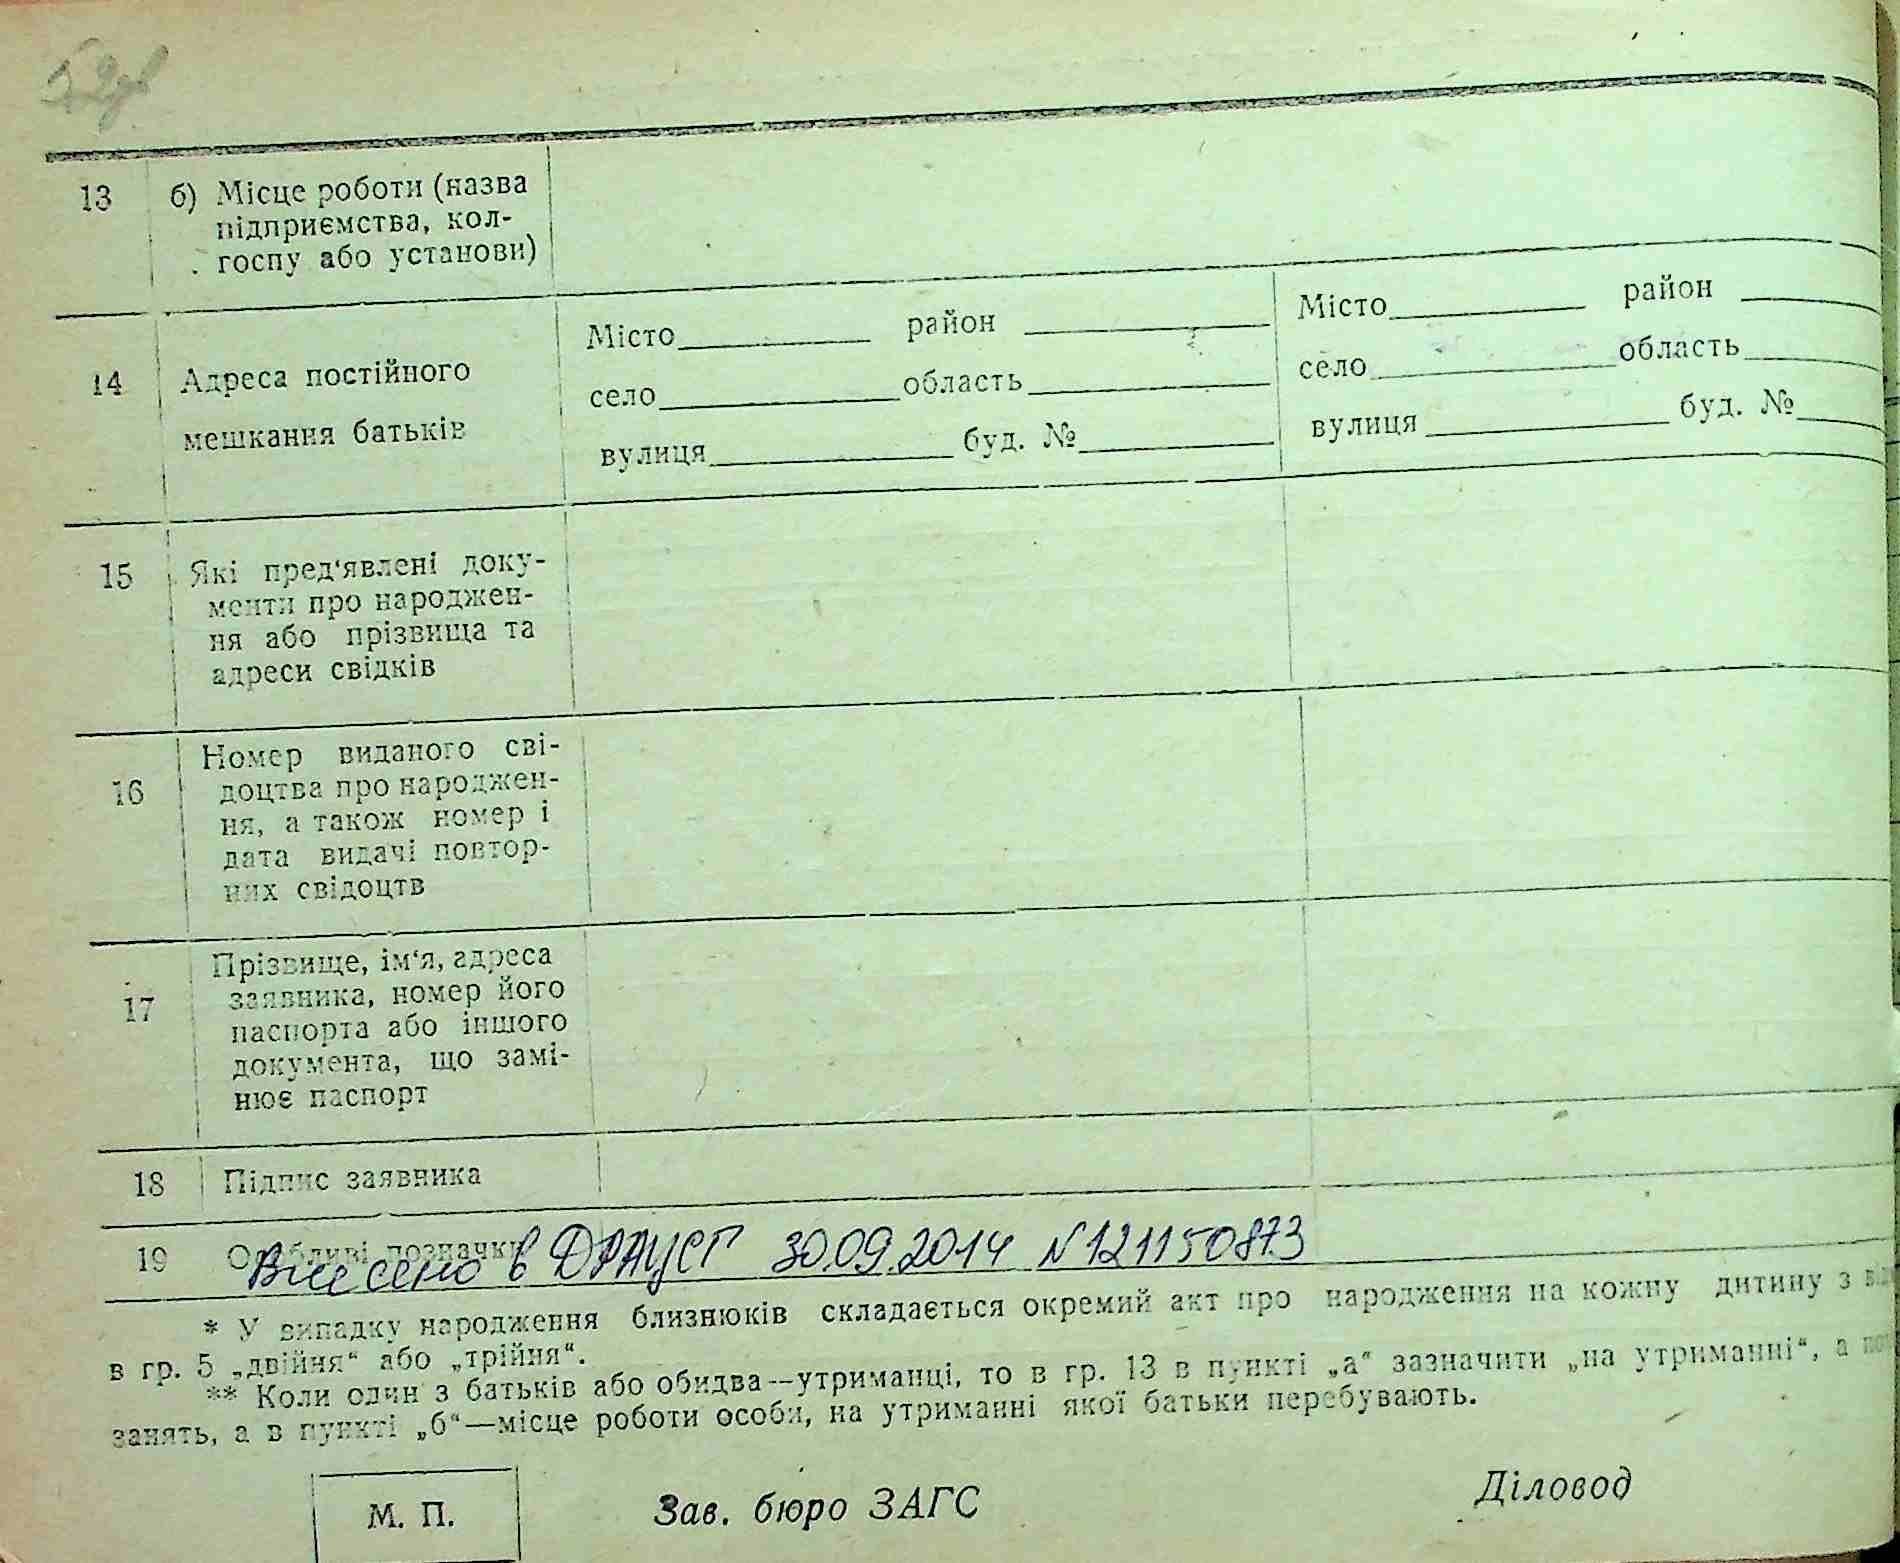 52зв
13
б) Місце роботи (назва
підприємства, кол-
госпу або установи)
14
Адреса постійного
мешкання батьків
Місто район
село область
вулиця буд. №
Місто район
село область
вулиця буд. №
15
Які пред‘явлені доку-
менти про народжен-
ня або прізвища та
адреси свідків
16
Номер виданого сві-
доцтва про народжен-
ня, а також номер і
дата видачі повтор-
них свідоцтв
17
Прізвище, ім‘я, адреса
заявника, номер його
паспорта або іншого
документа, що замі-
нює паспорт
18
Підпис заявника
19
Особливі позначки
Внесено в ДРАЦСГ 30.09.2014 N121150873
* У випадку народження близнюків складається окремий акт про народження на кожну дитину з
в гр. 5 „двійня“ або „трійня“.
** Коли один з батьків або обидва—утриманці, то в гр. 13 в пункті „а“ зазначити „на утриманні“, а
занять, а в пункті „б“—місце роботи особи, на утриманні якої батьки перебувають.
М. П.
Зав. бюро ЗАГС
Діловод